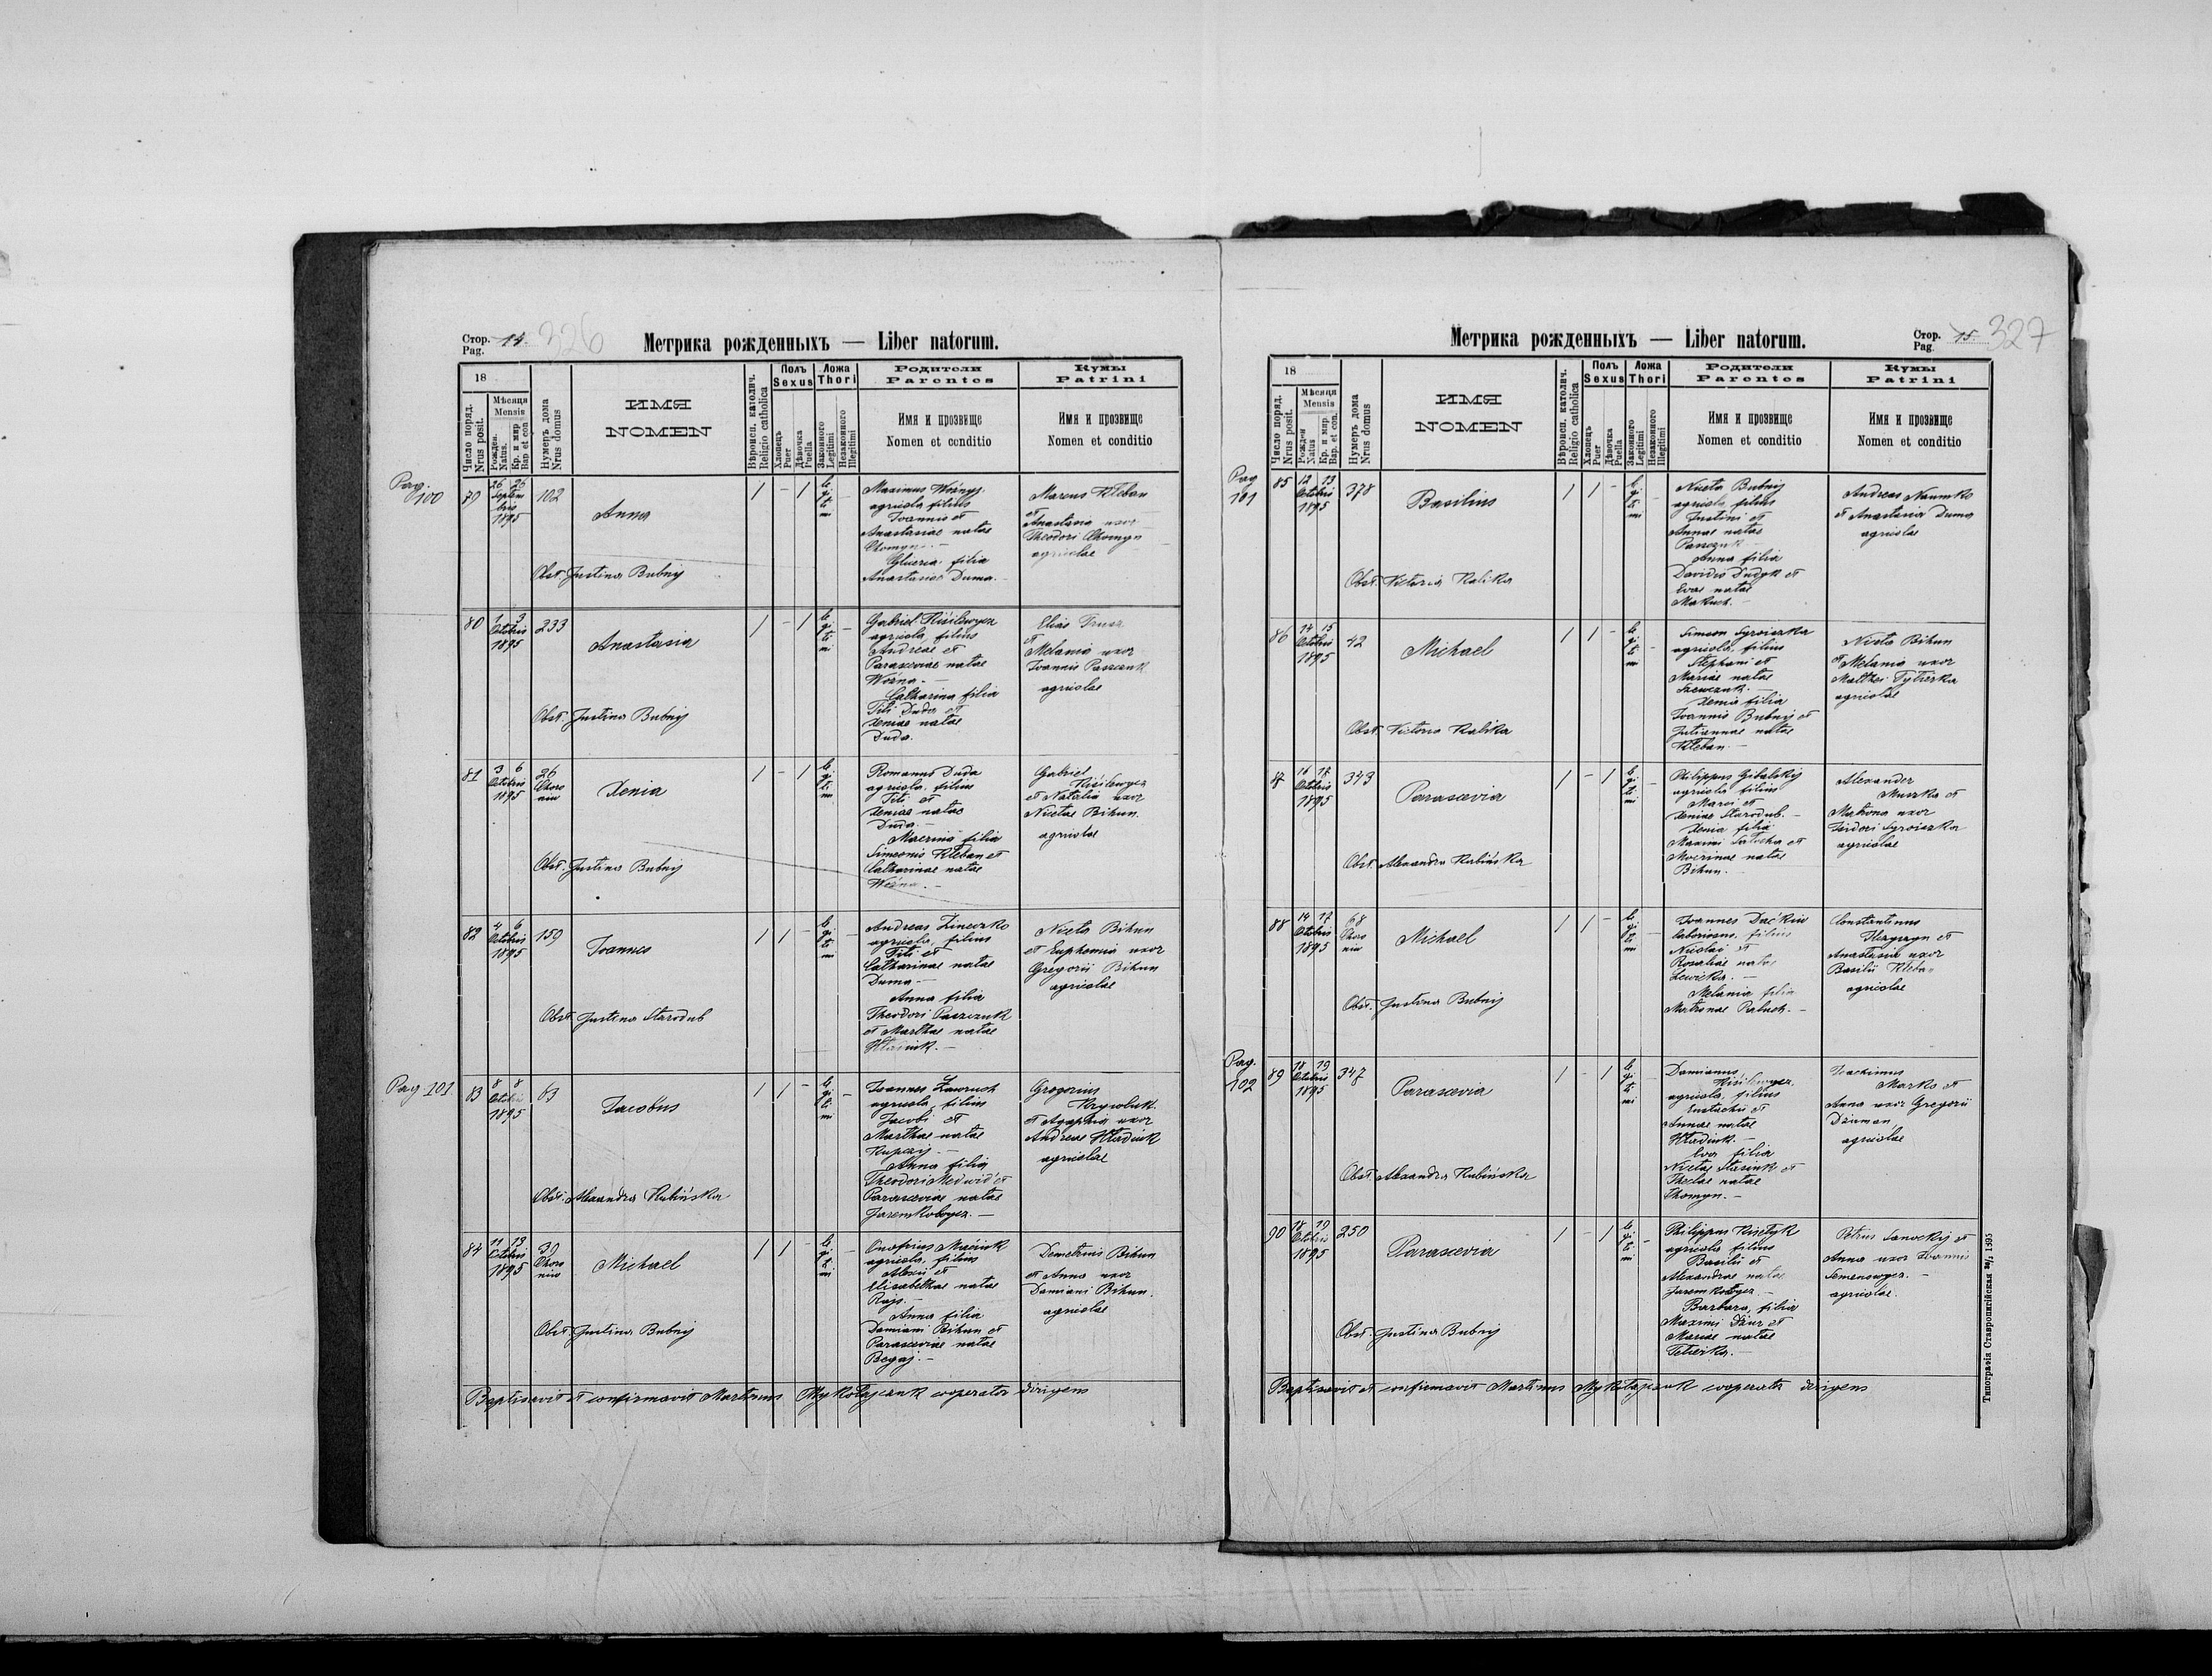 Стор. 14. 326
Pag.
Метрика рожденныхъ — Liber natorum.
18
Число поряд.
Nrus posit.
Мѣсяця
Mensis
Рожден.
Natus.
Кр. и мир
Bap et con
Нумеръ дома
Nrus domus
ИМЯ
NOMEN
Вѣроисп. католич.
Religio catholica
Полъ
Sexus
Хлопець
Puer
Дѣвочка
Puella
Ложа
Thori
Законного
Legitimi
Незаконного
Illegitimi
Родители
Parentes
Имя и прозвище
Nomen et conditio
Кумы
Patrini
Имя и прозвище
Nomen et conditio
Pag.
100
79
26 26
Septem
bris
1895
102
Anna
Obst. Justina Bubnij
/ - /
le
gi
ti
mi
-
Maximus Woźnyj
agricola filius
Joannis et
Anastasiae natae
Chomyn. -
Gluceria filia
Anastasiae Duma. -
Marcus Kleban
et
Anastasia uxor
Theodori Chomyn
agricolae
80
1 3
Octobris
1895
233
Anastasia
Obst. Justina Bubnij
/ - /
le
gi
ti
mi
-
Gabriel Kisilewycz
agricola, filius
Andreae et
Parasceviae natae
Woźna. -
Catharina filia
Titi Duda et
Xeniae natae
Duda.
Elias
et
Melania uxor
Joannis Paszczuk
agricolae
81
3 6
Octobris
1895
26
Choro
niu
Xenia
Obst. Justina Bubnij
/ - /
le
gi
ti
mi
-
Romanus Duda
agricola, filius
Titi et
Xeniae natae
Duda. -
Macrina filia
Simeonis Kleban et
Catharinae natae
Woźna. -
Gabriel
Kisilewycz
et Natalia uxor
Nicetae Bihun.
agricolae
82
4 6
Octobris
1895
159
Joannes
Obst. Justina Starodub
/ / -
le
gi
ti
mi
-
Andreas Zineczko
agricola, filius
Titi et
Catharinae natae
Duma -
Anna filia
Theodori Paszczuk
et Marthae natae
Hładiuk. -
Niceta Bihun
et Euphemia uxor
Gregorii Bihun
agricolae
Pag. 101
83
8 8
Octobris
1895
63
Jacobus
Obst. Alexandra Kubińska
/ / -
le
gi
ti
mi
-
Joannes Zawruch
agricola, filius
Jacobi et
Marthae natae
Kupczij. -
Anna filia
Theodori Medwid' et
Parasceviae natae
Jaremkowycz. -
Gregorius
Krywoluk.
et Agaphia uxor
Andreae Hładiuk
agricolae
84
11 13
Octobris
1895
39
Choro
niu
Michael
Obst. Justina Bubnij
/ / -
le
gi
ti
mi
-
Onofrius Maciuk
agricola, filius
Alexii et
Elisabethae natae
Rojo. -
Anna filia
Damiani Bihun et
Parasceviae natae
Begaj. -
Demetrius Bihun
et Anna uxor
Damiani Bihun.
agricolae
Baptisavit et confirmavit Martinus Mykołajczuk cooperator dirigens
Метрика рожденныхъ — Liber natorum.
Стор. 15. 327
Pag.
18
Число поряд.
Nrus posit.
Мѣсяця
Mensis
Рожден
Natus
Кр. и мир
Bap. et con.
Нумеръ дома
Nrus domus
ИМЯ
NOMEN
Вѣроисп. католич.
Religio catholica
Полъ
Sexus
Хлопець
Puer
Дѣвочка
Puella
Ложа
Thori
Законного
Legitimi
Незаконного
Illegitimi
Родители
Parentes
Имя и прозвище
Nomen et conditio
Кумы
Patrini
Имя и прозвище
Nomen et conditio
Pag
101
85
12 13
Octobris
1895
378
Basilius
Obst. Victoria Kalika
/ / -
le
gi
ti
mi
-
Niceta Bubnij
agricola, filius
Justini et
Annae natae
Paszczuk -
Anna filia
Davidis Dudyk et
Evae natae
Makuch. -
Andreas Naumko
et Anastasia Duma
agricolae
86
14 15
Octobris
1895
42
Michael
Obst. Victoria Kalika
/ / -
le
gi
ti
mi
-
Simeon Syroiczka
agricola, filius
Stephani et
Mariae natae
Szewczuk. -
Xenia filia
Joannis Bubnij et
Julianae natae
Kleban. -
Niceta Bihun
et Melania uxor
Matthei
agricolae
87
16 17
Octobris
1895
343
Parascevia
Obst. Alexandra Kubińska
/ - /
le
gi
ti
mi
-
Philippus Gibalskij
agricola filius
Marci et
Xeniae Starodub. -
Xenia filia
Maximi et
Macrinae natae
Bihun. -
Alexander
Muszka et
Matrona uxor
Isidori Syroiczka
agricolae
88
14 17
Octobris
1895
68
Choro
niu
Michael
Obst. Justina Bubnij
/ / -
le
gi
ti
mi
-
Joannes Dackiw
laboriosus, filius
Nicolai et
Rosaliae natae
Lewicka. -
Melania filia
Matronae Paluch. -
Constantinus
et
Anastasia uxor
Basilii Kleban
agricolae
Pag.
102
89
18 19
Octobris
1895
347
Parascevia
Obst. Alexandra Kubińska
/ - /
le
gi
ti
mi
-
Damianus
Kisilewycz.
agricola, filius
Eustachii et
Annae natae
Hładiuk. -
Eva filia
Nicetae Stasiuk et
Theclae natae
Chomyn. -
Joachimus
Marko et
Anna uxor Gregorii
Dziuman
agricolae
90
18 19
Octobris
1895
250
Parascevia
Obst. Justina Bubnij
/ - /
le
gi
ti
mi
-
Philippus Kisełyk
agricola filius
Basilii et
Alexandrae natae
Jaremkowycz. -
Barbara, filia
Maximi Dziur et
Mariae natae
Teterka. -
Petrus Sanockij et
Anna uxor Joannis
Semenowycz. -
agricolae.
Baptisavit et confirmavit Martinus Mykołajczuk cooperator dirigens